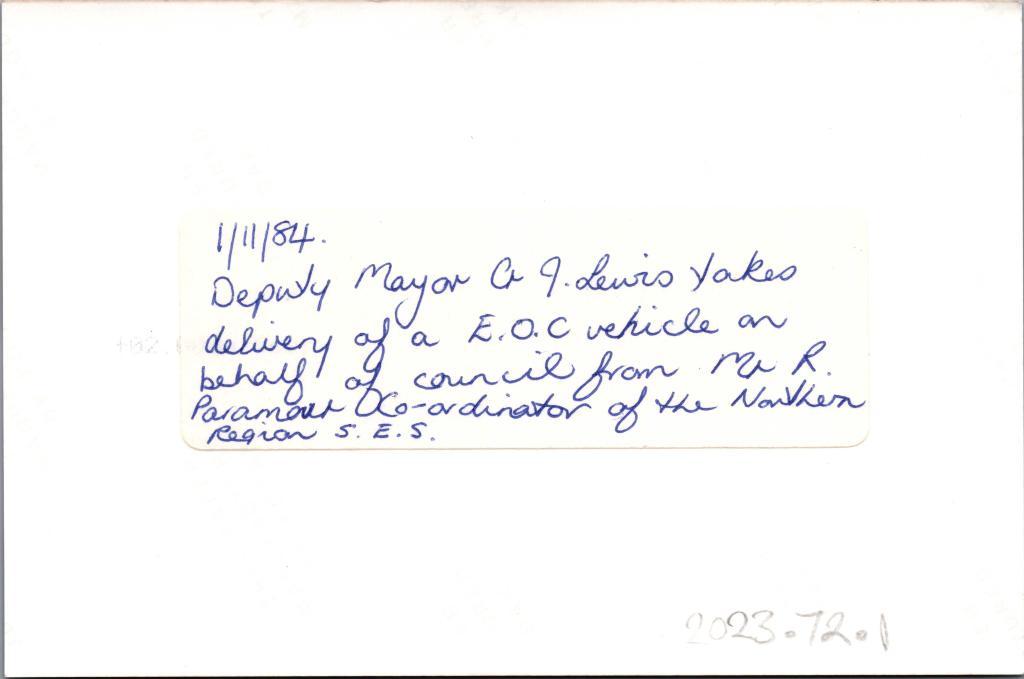 1/11/84.
Deputy Mayor Cr J. Lewis takes
delivery of a E.O.C vehicle on
behalf of council from Mr R.
Paramour Co-ordinator of the Northern
Region S.E.S.
2023.72.1